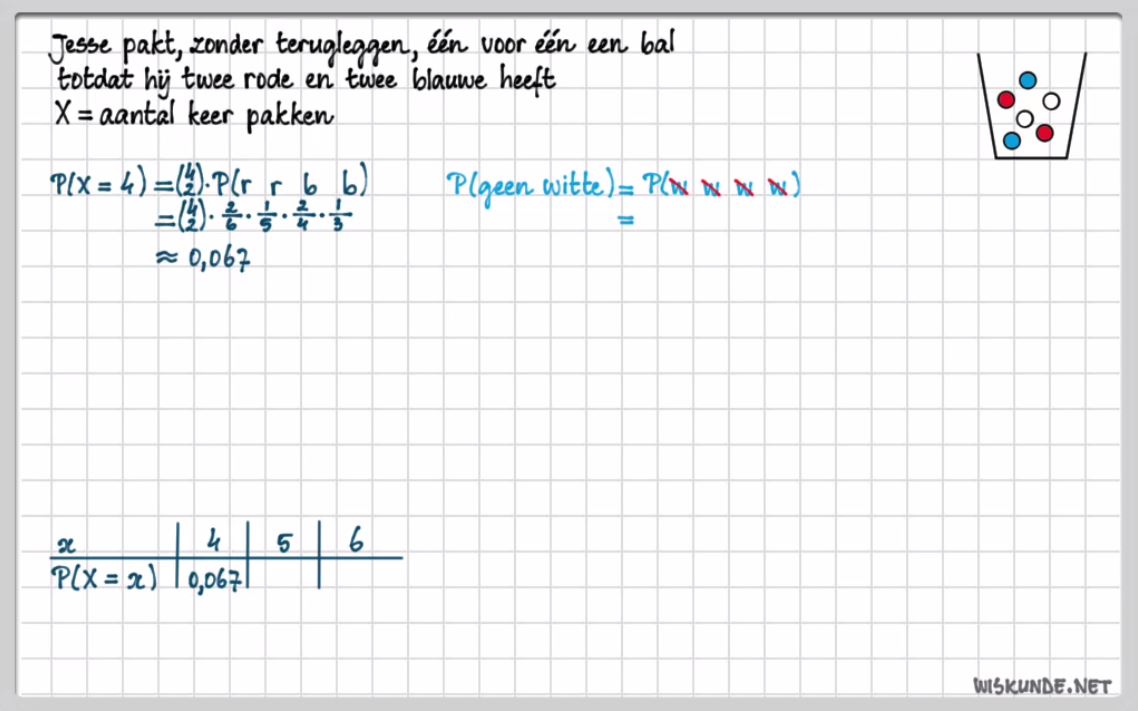 Jesse pakt, zonder terugleggen, één voor één een bal
totdat hij twee rode en twee blauwe heeft
X = aantal keer pakken
P(X = 4) = (4 2) · P(r r b b)
= (4 2) · 2/6 · 1/5 · 2/4 · 1/3
≈ 0,067
P(geen witte) = P(w̸ w̸ w̸ w̸)
=
x 4 5 6
P(X = x) 0,067
WISKUNDE.NET